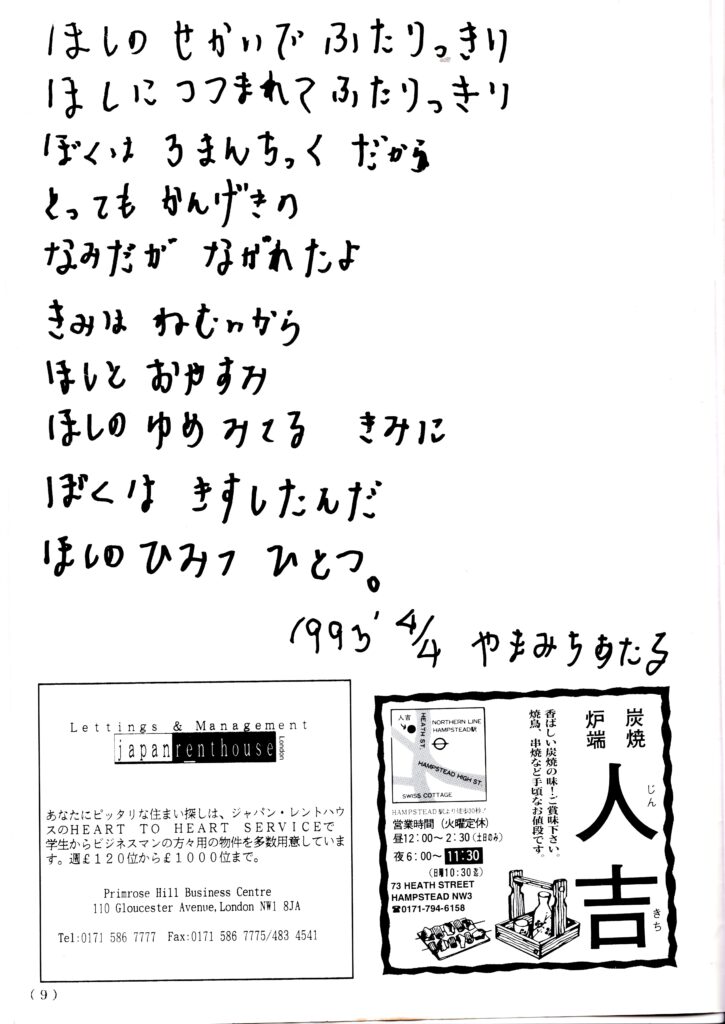 ほしの せかいで ふたりっきり
ほしに つつまれて ふたりっきり
ぼくは ろまんちっく だから
とっても かんげきの
なみだが ながれたよ
きみは ねむいから
ほしと おやすみ
ほしの ゆめ みてる きみに
ぼくは きすしたんだ
ほしの ひみつ ひとつ。
1993' 4/4 やまみちあたる
Lettings & Management
japanrenthouse London
あなたにピッタリな住まい探しは、ジャパン・レントハウ
スのHEART TO HEART SERVICEで
学生からビジネスマンの方々用の物件を多数用意していま
す。週£120位から£1000位まで。
Primrose Hill Business Centre
110 Gloucester Avenue, London NW1 8JA
Tel:0171 586 7777 Fax:0171 586 7775/483 4541
炭焼
炉端
人吉
じん
きち
香ばしい炭焼の味!ご賞味下さい。
焼鳥、串焼など手頃なお値段です。
人吉
HEATH ST.
NORTHERN LINE
HAMPSTEAD駅
HAMPSTEAD HIGH ST.
SWISS COTTAGE
HAMPSTEAD駅より徒歩30秒!
営業時間(火曜定休)
昼12:00〜2:30(土日のみ)
夜6:00〜11:30
(日曜10:30迄)
73 HEATH STREET
HAMPSTEAD NW3
☎0171-794-6158
(9)